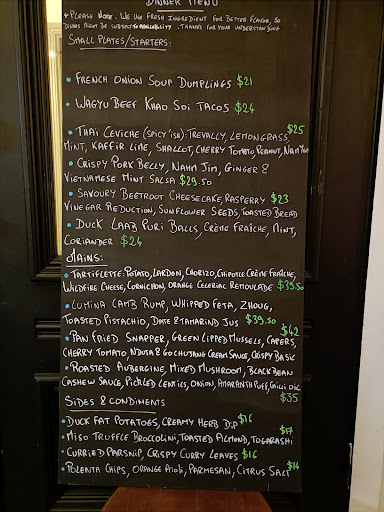 DINNER MENU
* PLEASE NOTE. WE USE FRESH INGREDIENT FOR BETTER FLAVOR, SO
DISHES MIGHT BE SUBJECT TO AVAILABILITY. THANKS FOR YOUR UNDERSTANDING
SMALL PLATES/STARTERS:
• FRENCH ONION SOUP DUMPLINGS $21
• WAGYU BEEF KHAO SOI TACOS $24
• THAI CEVICHE (SPICY ISH): TREVALLY, LEMONGRASS, $25
MINT, KAFFIR LIME, SHALLOT, CHERRY TOMATO, PEANUT, NAM YUM
• CRISPY PORK BELLY, NAHM JIM, GINGER &
VIETNAMESE MINT SALSA $29.50
• SAVOURY BEETROOT CHEESECAKE, RASPERRY $23
VINEGAR REDUCTION, SUNFLOWER SEEDS, TOASTED BREAD
• DUCK LAAB PURI BALLS, CRÈME FRAÎCHE, MINT,
CORIANDER $24
MAINS:
• TARTIFLETTE: POTATO, LARDON, CHORIZO, CHIPOTLE CRÈME FRAÎCHE,
WILDFIRE CHEESE, CORNICHON, ORANGE CELERIAC REMOULADE $39.50
• LUMINA LAMB RUMP, WHIPPED FETA, ZHOUG,
TOASTED PISTACHIO, DATE & TAMARIND JUS $39.50
• PAN FRIED SNAPPER, GREEN LIPPED MUSSELS, CAPERS, $42
CHERRY TOMATO, NDUJA & GOCHUJANG CREAM SAUCE, CRISPY BASIL
• ROASTED AUBERGINE, MIXED MUSHROOM, BLACK BEAN
CASHEW SAUCE, PICKLED LENTILS, ONION, AMARANTH PUFF, CHILLI OIL
$35
SIDES & CONDIMENTS
• DUCK FAT POTATOES, CREAMY HERB DIP $16
• MISO TRUFFLE BROCCOLINI, TOASTED ALMOND, TOGARASHI $17
• CURRIED PARSNIP, CRISPY CURRY LEAVES $16
• POLENTA CHIPS, ORANGE AIOLI, PARMESAN, CITRUS SALT $14